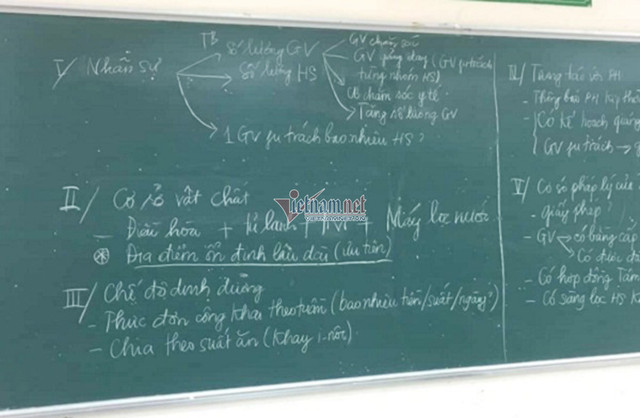 I/ Nhân sự
TB Số lượng GV
Số lượng HS
GV chăm sóc
GV giảng dạy (GV fụ trách
từng nhóm HS)
CB chăm sóc y tế
Tăng số lượng GV
1 GV fụ trách bao nhiêu HS?
II/ Cơ sở vật chất
- Điều hòa + tủ lạnh + tivi + Máy lọc nước
Vietnamnet
* Địa điểm ổn định lâu dài (ưu tiên)
III/ Chế độ dinh dưỡng
- Thực đơn công khai theo tuần (bao nhiêu tiền/suất/ngày?)
- Chia theo suất ăn (Khay i-nốc)
IV/ Tương tác với PH
- Thông báo PH kịp thời
- Có kế hoạch
GV fụ trách
V/ Cơ sở pháp lý của
giấy phép?
- GV có bằng cấp
Có được
- Có hợp đồng
- Có sàng lọc HS